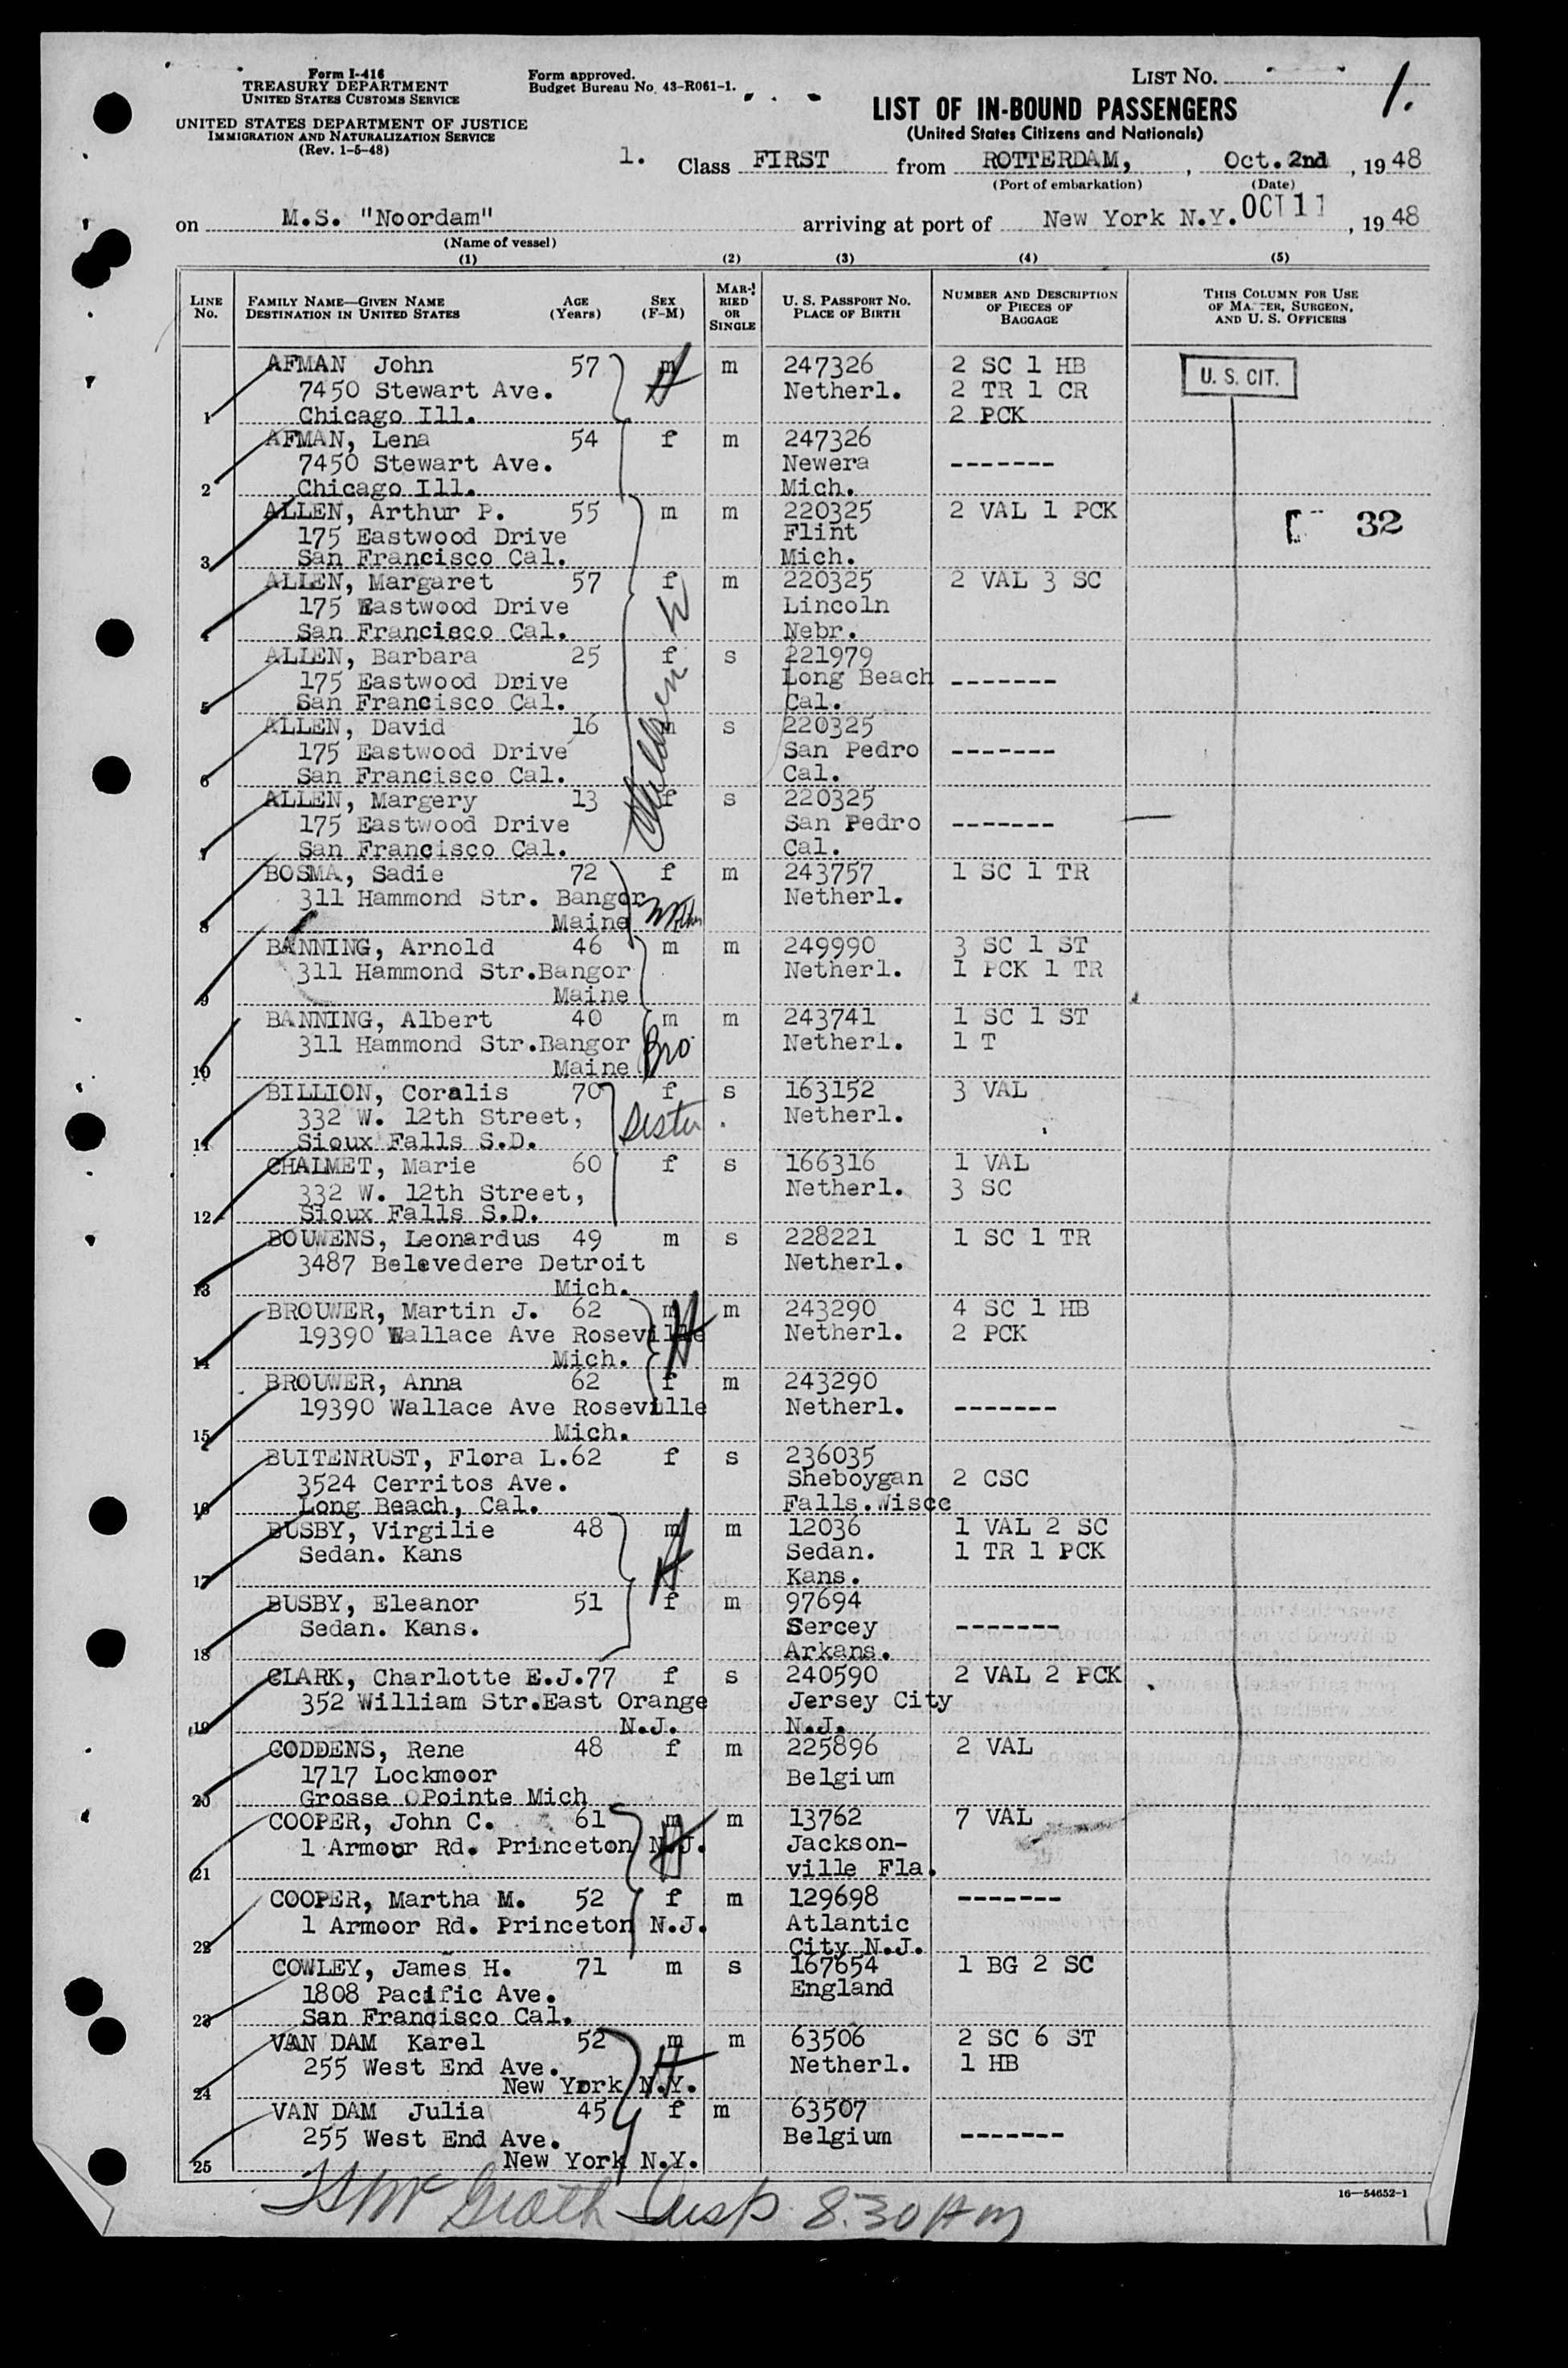 Form I-416
TREASURY DEPARTMENT
UNITED STATES CUSTOMS SERVICE
UNITED STATES DEPARTMENT OF JUSTICE
IMMIGRATION AND NATURALIZATION SERVICE
(Rev. 1-5-48)
Form approved.
Budget Bureau No. 43-R061-1.
LIST NO. 1.
LIST OF IN-BOUND PASSENGERS
(United States Citizens and Nationals)
1. Class FIRST from ROTTERDAM, , Oct. 2nd , 19 48
(Port of embarkation) (Date)
on M.S. "Noordam" arriving at port of New York N.Y. OCT 11 , 19 48
(Name of vessel)
(1) (2) (3) (4) (5)
LINE NO. FAMILY NAME—GIVEN NAME DESTINATION IN UNITED STATES AGE (Years) SEX (F-M) MARRIED OR SINGLE U. S. PASSPORT NO. PLACE OF BIRTH NUMBER AND DESCRIPTION OF PIECES OF BAGGAGE THIS COLUMN FOR USE OF MASTER, SURGEON, AND U. S. OFFICERS
AFMAN John 57 m m 247326 2 SC 1 HB U. S. CIT.
7450 Stewart Ave. H Netherl. 2 TR 1 CR
1 Chicago Ill. 2 PCK
AFMAN, Lena 54 f m 247326
7450 Stewart Ave. Newera -------
2 Chicago Ill. Mich.
ALLEN, Arthur P. 55 m m 220325 2 VAL 1 PCK 32
175 Eastwood Drive Flint
3 San Francisco Cal. Mich.
ALLEN, Margaret 57 f m 220325 2 VAL 3 SC
175 Eastwood Drive W Lincoln
4 San Francisco Cal. Nebr.
ALLEN, Barbara 25 f s 221979
175 Eastwood Drive Long Beach -------
5 San Francisco Cal. Cal.
Children
ALLEN, David 16 m s 220325
175 Eastwood Drive San Pedro -------
6 San Francisco Cal. Cal.
ALLEN, Margery 13 f s 220325
175 Eastwood Drive San Pedro -------
7 San Francisco Cal. Cal.
BOSMA, Sadie 72 f m 243757 1 SC 1 TR
311 Hammond Str. Bangor Netherl.
8 Maine Mother
BANNING, Arnold 46 m m 249990 3 SC 1 ST
311 Hammond Str.Bangor Netherl. 1 PCK 1 TR
9 Maine
BANNING, Albert 40 m m 243741 1 SC 1 ST
311 Hammond Str.Bangor Bro Netherl. 1 T
10 Maine
BILLION, Coralis 70 f s 163152 3 VAL
332 W. 12th Street, Sister Netherl.
11 Sioux Falls S.D.
CHALMET, Marie 60 f s 166316 1 VAL
332 W. 12th Street, Netherl. 3 SC
12 Sioux Falls S.D.
BOUWENS, Leonardus 49 m s 228221 1 SC 1 TR
3487 Belevedere Detroit Netherl.
13 Mich.
BROUWER, Martin J. 62 m m 243290 4 SC 1 HB
19390 Wallace Ave Roseville H Netherl. 2 PCK
14 Mich.
BROUWER, Anna 62 f m 243290
19390 Wallace Ave Roseville Netherl. -------
15 Mich.
BUITENRUST, Flora L. 62 f s 236035
3524 Cerritos Ave. Sheboygan 2 CSC
16 Long Beach, Cal. Falls.Wisce
BUSBY, Virgilie 48 m m 12036 1 VAL 2 SC
Sedan. Kans H Sedan. 1 TR 1 PCK
17 Kans.
BUSBY, Eleanor 51 f m 97694
Sedan. Kans. Sercey -------
18 Arkans.
CLARK, Charlotte E.J. 77 f s 240590 2 VAL 2 PCK
352 William Str.East Orange Jersey City
19 N.J. N.J.
CODDENS, Rene 48 f m 225896 2 VAL
1717 Lockmoor Belgium
20 Grosse OPointe Mich
COOPER, John C. 61 m m 13762 7 VAL
1 Armour Rd. Princeton N.J. H Jackson-
21 ville Fla.
COOPER, Martha M. 52 f m 129698 -------
1 Armoor Rd. Princeton N.J. Atlantic
22 City N.J.
COWLEY, James H. 71 m s 167654 1 BG 2 SC
1808 Pacific Ave. England
23 San Francisco Cal.
VAN DAM Karel 52 m m 63506 2 SC 6 ST
255 West End Ave. H Netherl. 1 HB
24 New York N.Y.
VAN DAM Julia 45 f m 63507
255 West End Ave. Belgium -------
25 New York N.Y.
Grath Insp 8.30 AM
16—54652-1